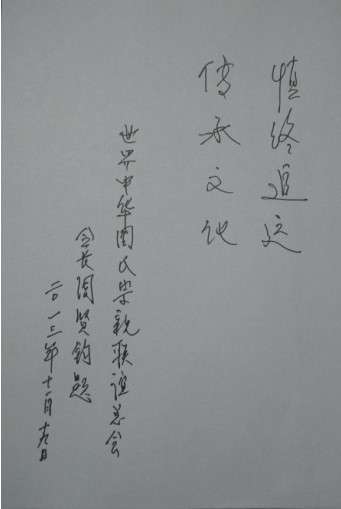 慎终追远
传承文化
世界中华周氏宗亲联谊总会
会长周贤钧题
二〇一三年十一月十九日